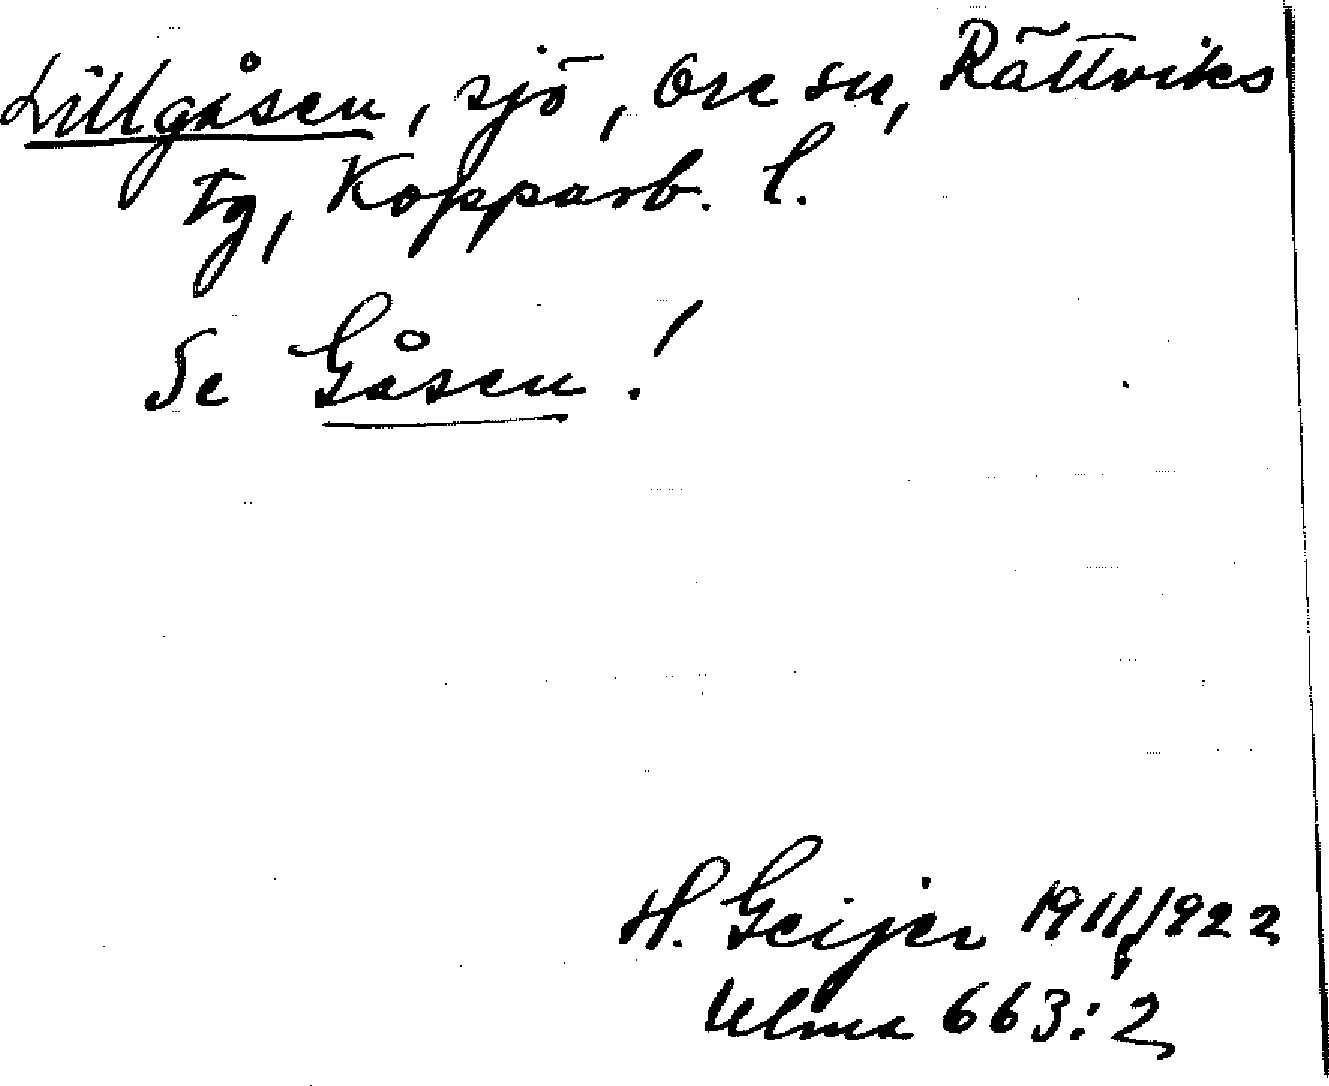 Lillgåsen, sjö, Ore sn, Rättviks
tg, Kopparb. l.
Se Gåsen!
H. Geijer 19 11/1 922
Ulma 663:2